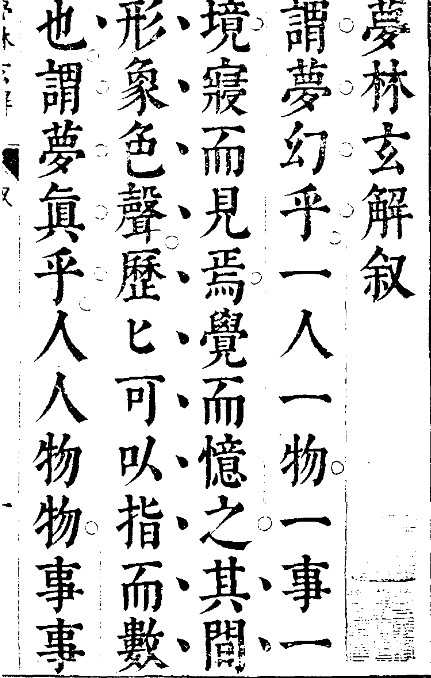 夢林玄解叙
謂夢幻乎一人一物一事一
境寢而見焉覺而憶之其間
形象色聲歷匕可以指而數
也謂夢眞乎人人物物事事